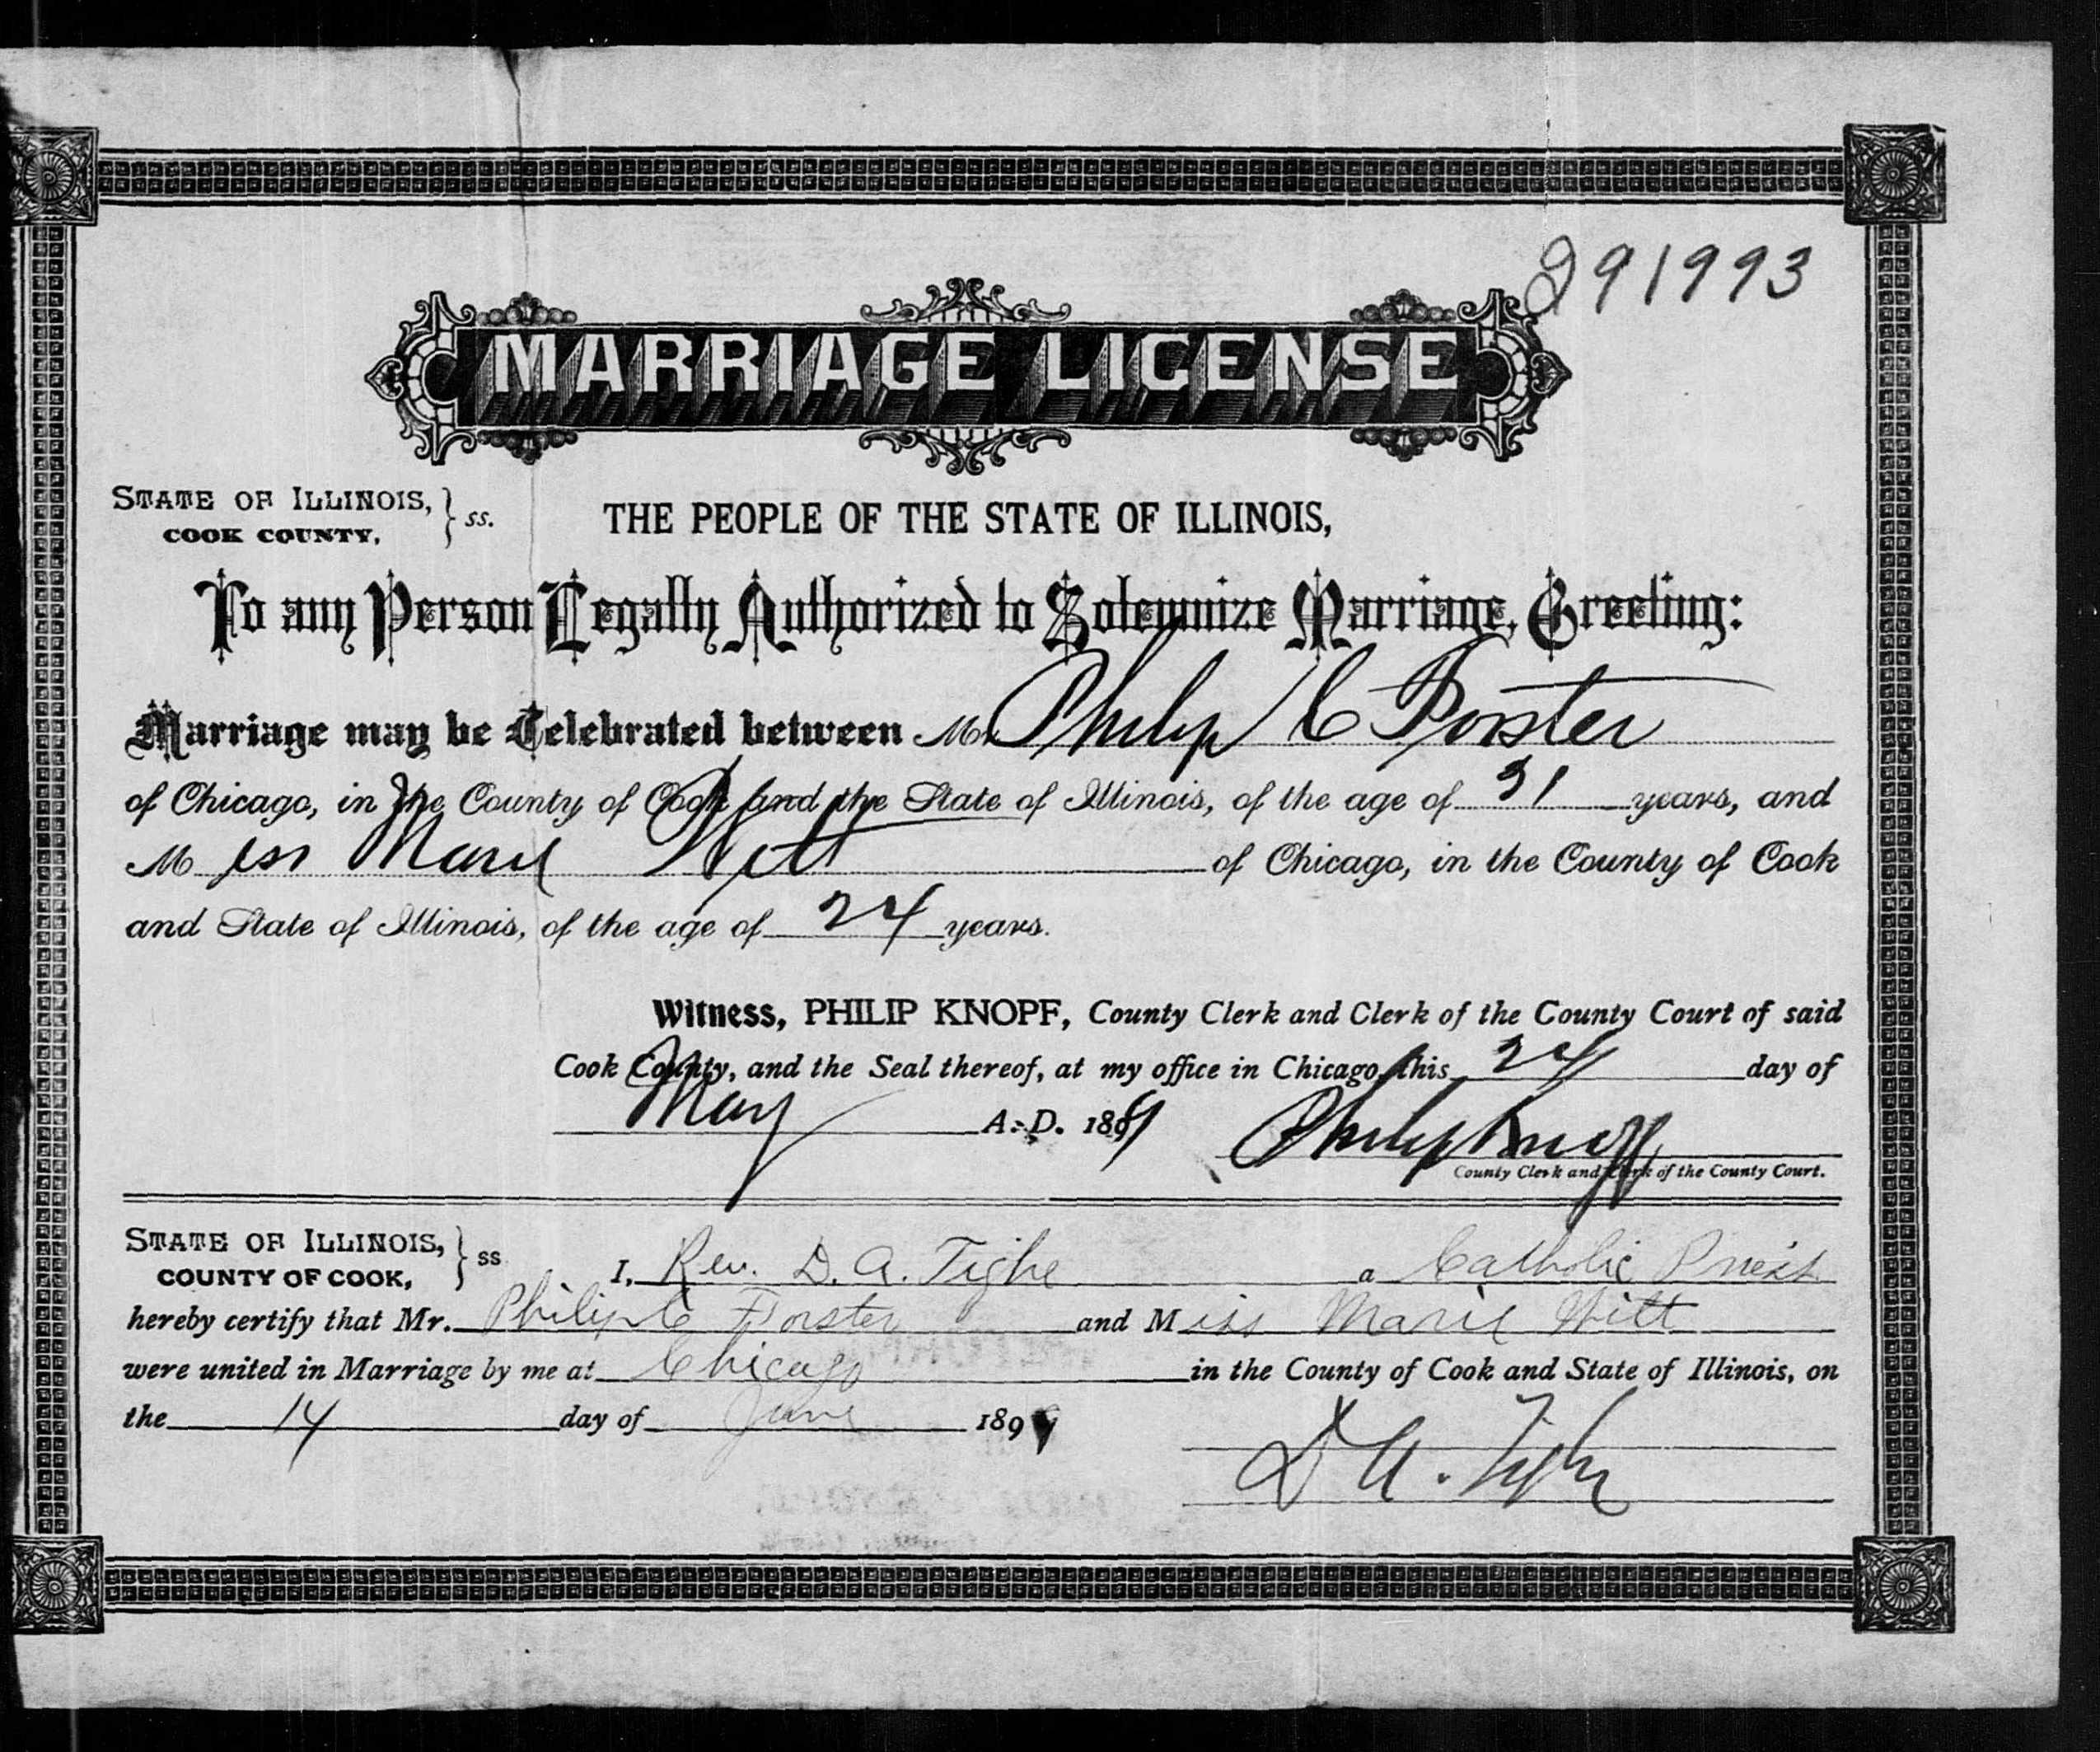 291993
MARRIAGE LICENSE
STATE OF ILLINOIS,
COOK COUNTY, } ss.
THE PEOPLE OF THE STATE OF ILLINOIS,
To any Person Legally Authorized to Solemnize Marriage, Greeting:
Marriage may be Celebrated between Mr Philip C Forster
of Chicago, in the County of Cook and the State of Illinois, of the age of 31 years, and
Miss Marie Witt of Chicago, in the County of Cook
and State of Illinois, of the age of 24 years.
Witness, PHILIP KNOPF, County Clerk and Clerk of the County Court of said
Cook County, and the Seal thereof, at my office in Chicago, this 24 day of
May A.D. 189
Philip Knopf
County Clerk and Clerk of the County Court.
STATE OF ILLINOIS,
COUNTY OF COOK, } ss
I, Rev. D. A. Tighe a Catholic Priest
hereby certify that Mr. Philip C Forster and Miss Marie Witt
were united in Marriage by me at Chicago in the County of Cook and State of Illinois, on
the 14 day of June 189
D A. Tighe